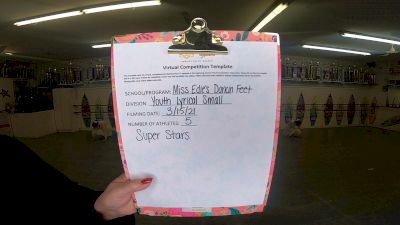 Virtual Competition Template
SCHOOL/PROGRAM: Miss Edie's Dancin Feet
DIVISION: Youth Lyrical Small
FILMING DATE: 3/15/21
NUMBER OF ATHLETES: 5
Super Stars